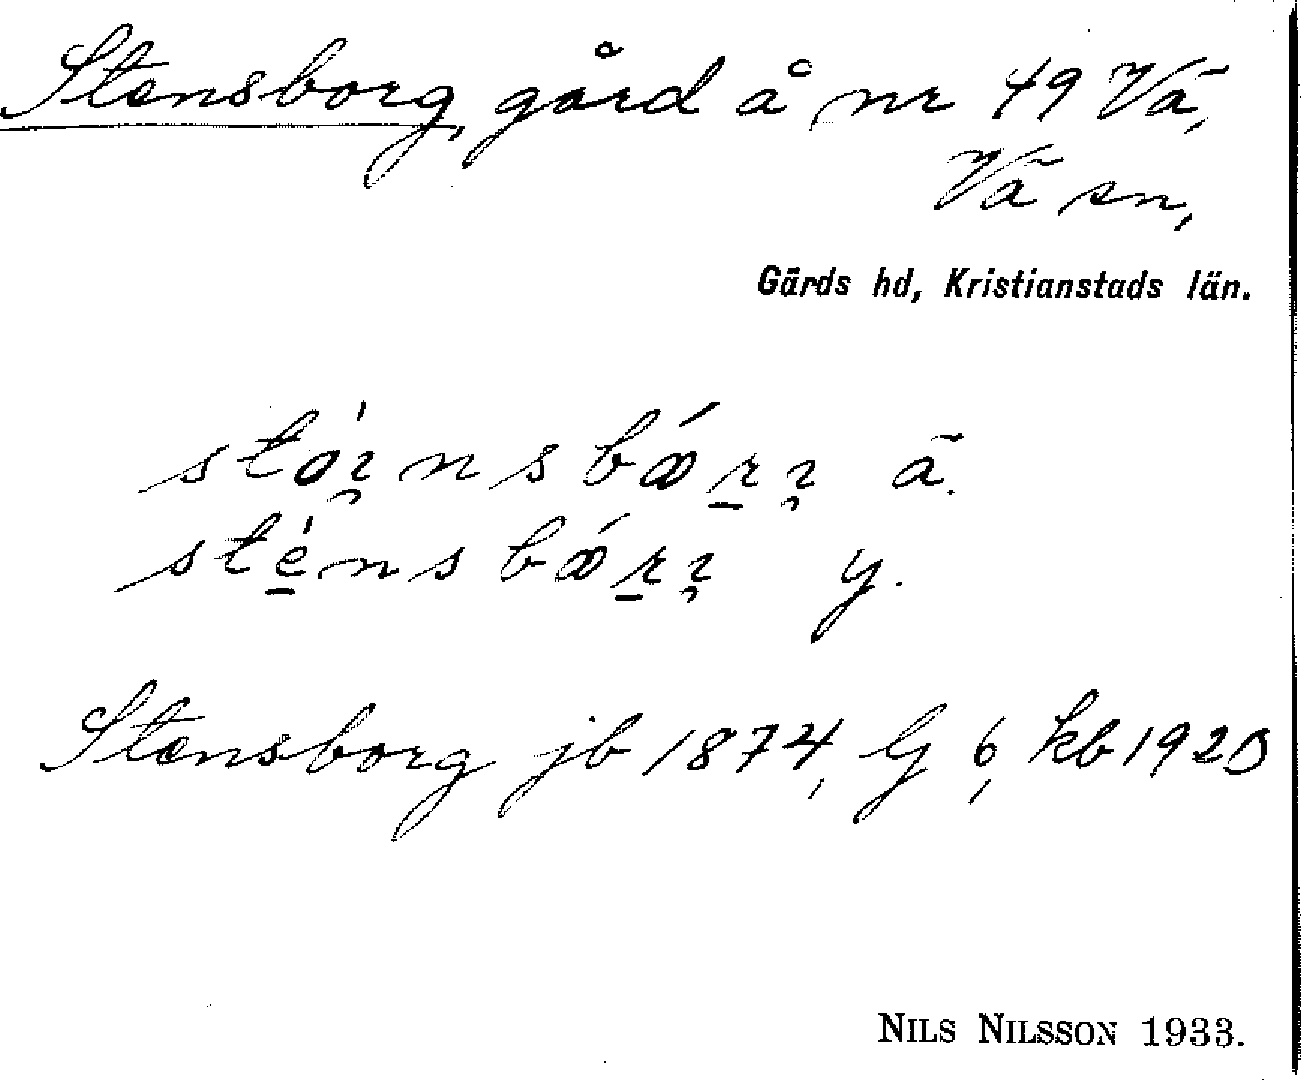 Stensborg, gård å nr 49 Vä,
Vä sn,
Gärds hd, Kristianstads län.
ä.
y.
Stensborg jb 1874, G 6, kb 1920
NILS NILSSON 1933.